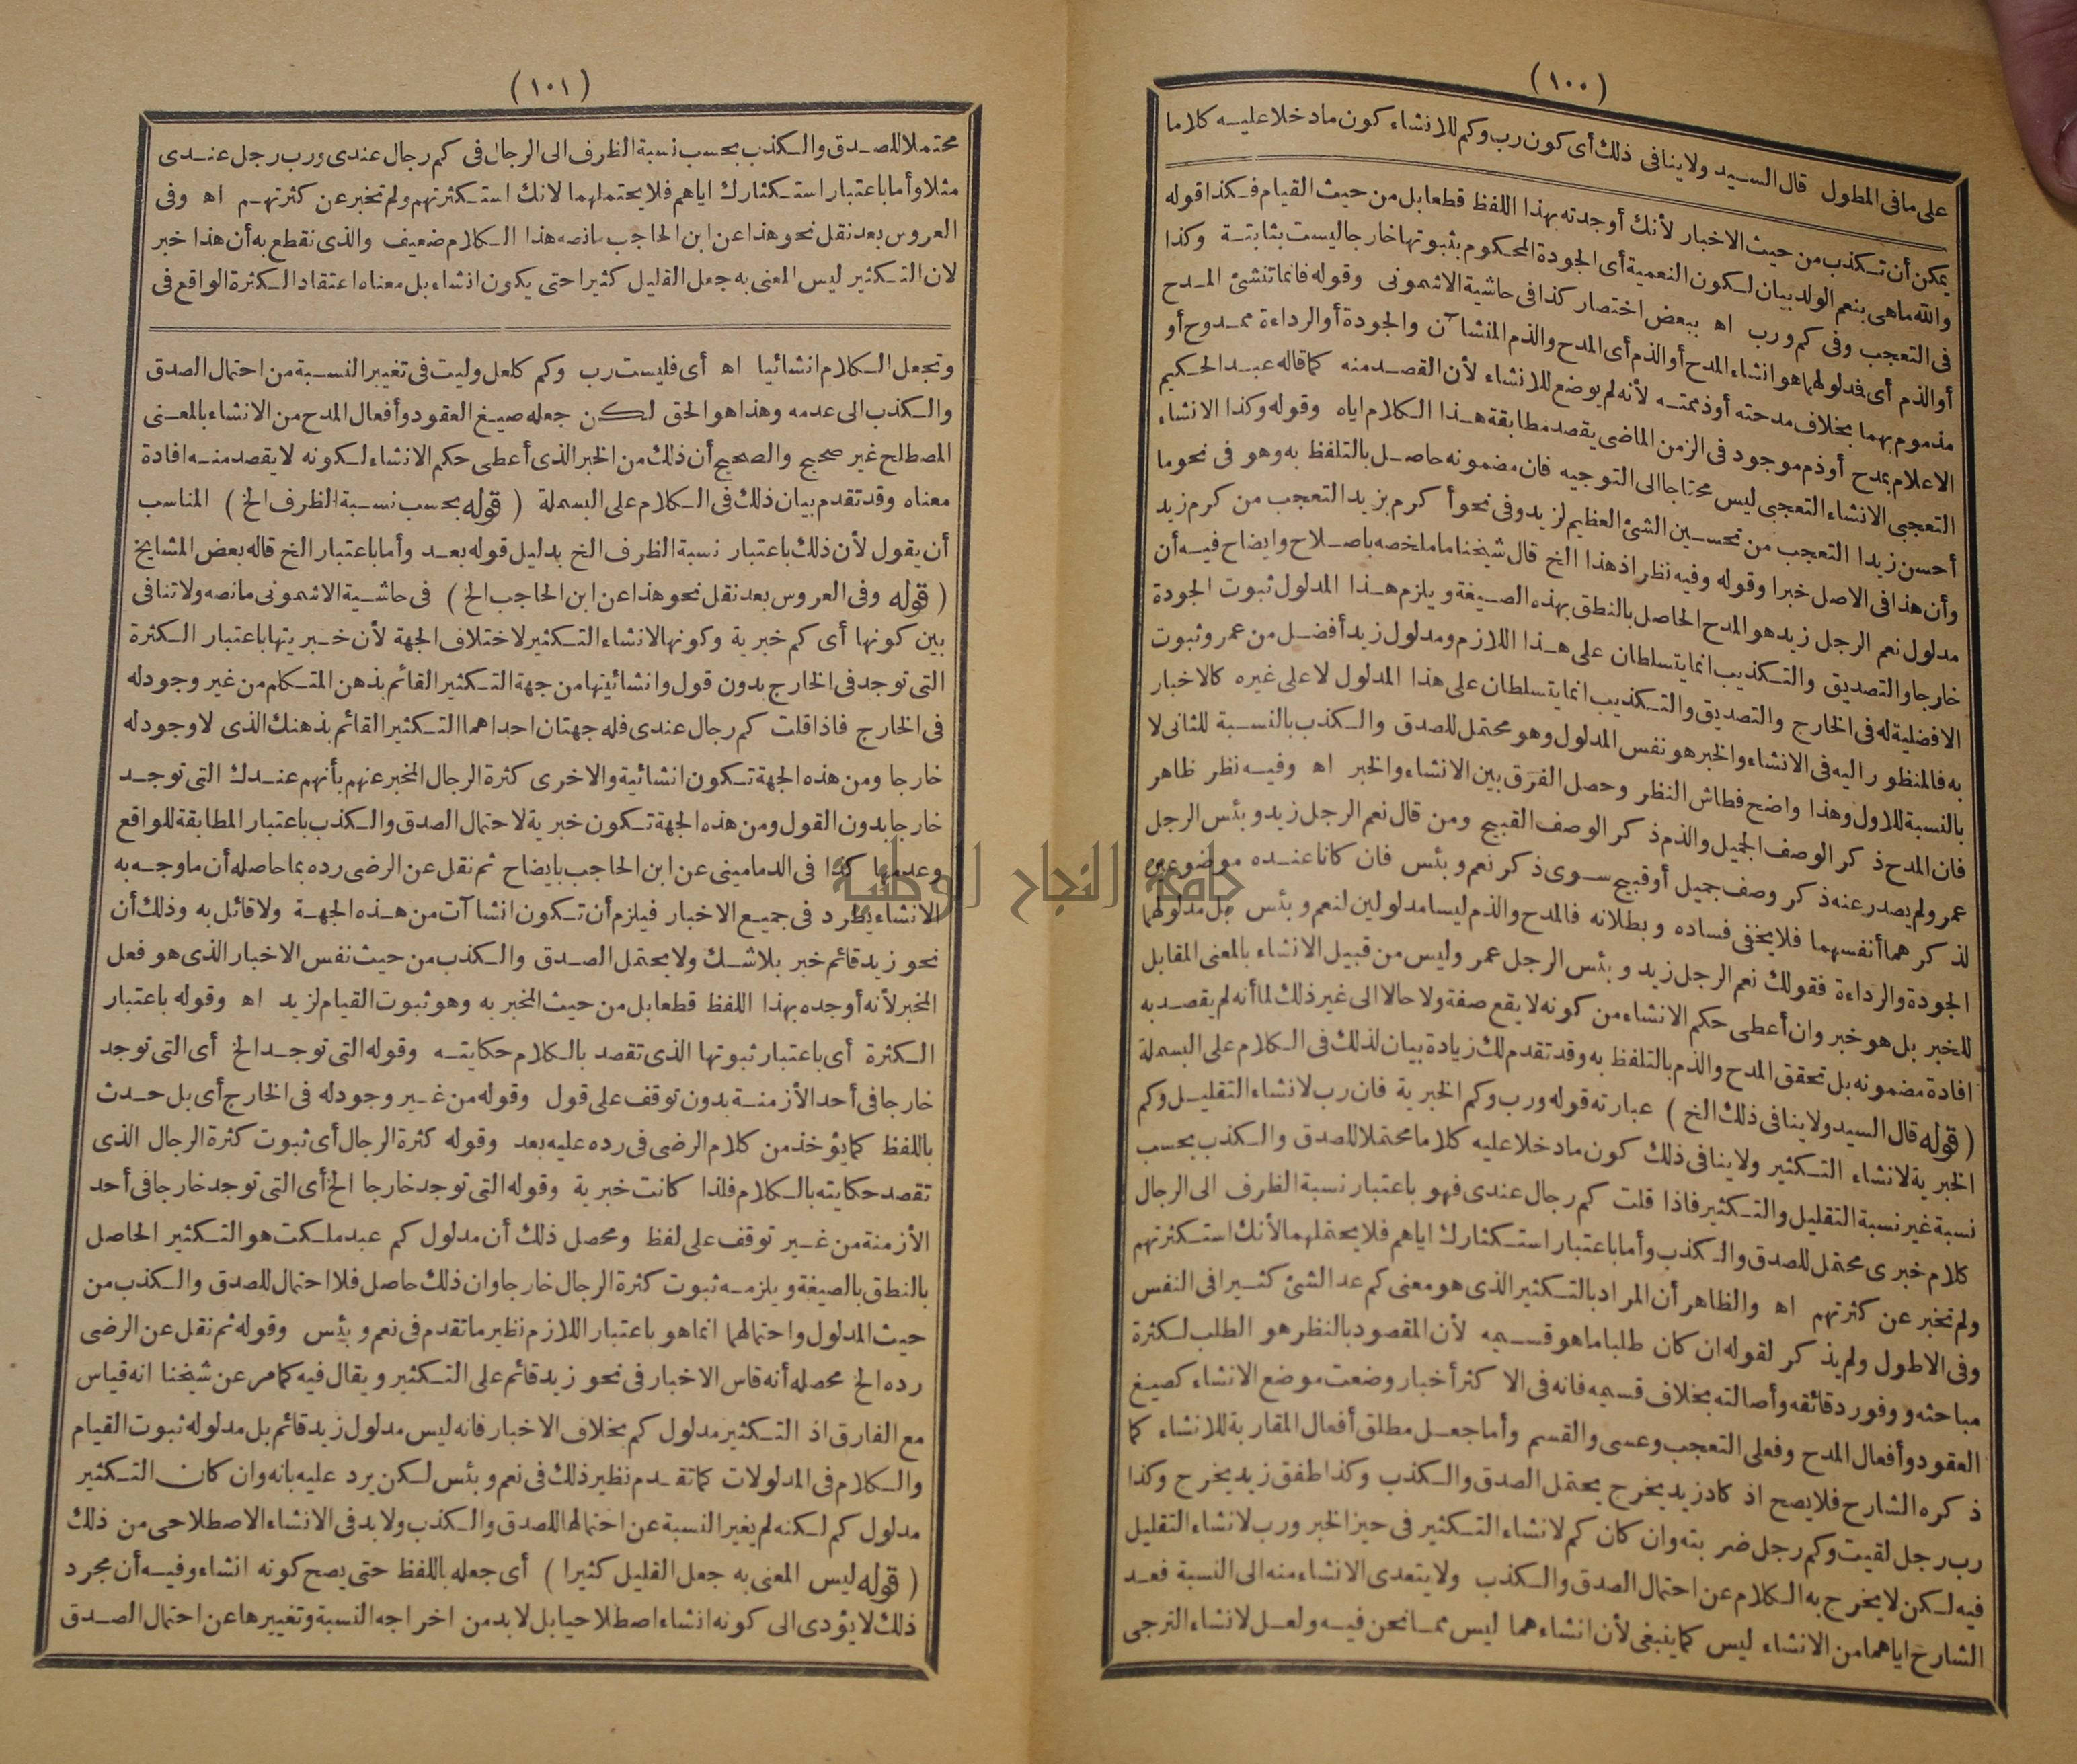 (١٠٠)
على مافى المطول قال السيد ولاينافى ذلك أى كون رب وكم للانشاء كون مادخلاعليه كلاما
يمكن أن تكذب من حيث الاخبار لأنك أوجدته بهذا اللفظ قطعا بل من حيث القيام فكذا قوله
والله ماهى بنعم الولد بيان لكون النعمية أى الجودة المحكوم بثبوتها خارجا ليست بثابتة وكذا
فى التعجب وفى كم ورب اه ببعض اختصار كذا فى حاشية الاشمونى وقوله فانما تنشئ المدح
أو الذم أى فدلولهما هو انشاء المدح أو الذم أى المدح والذم المنشآن والجودة أو الرداءة ممدوح أو
مذموم بهما بخلاف مدحته أو ذممته لأنه لم يوضع للانشاء لأن القصد منه كما قاله عبد الحكيم
الاعلام بمدح أو ذم موجود فى الزمن الماضى يقصد مطابقة هذا الكلام اياه وقوله وكذا الانشاء
التعجبى الانشاء التعجبى ليس محتاجا الى التوجيه فان مضمونه حاصل بالتلفظ به وهو فى نحو ما
أحسن زيدا التعجب من تحسين الشئ العظيم لزيد وفى نحو أكرم بزيد التعجب من كرم زيد
وأن هذا فى الاصل خبرا وقوله وفيه نظر اذ هذا الخ قال شيخنا ما ملخصه باصلاح وايضاح فيه أن
مدلول نعم الرجل زيد هو المدح الحاصل بالنطق بهذه الصيغة ويلزم هذا المدلول ثبوت الجودة
خارجا والتصديق والتكذيب انما يتسلطان على هذا اللازم ومدلول زيد أفضل من عمر وثبوت
الافضلية له فى الخارج والتصديق والتكذيب انما يتسلطان على هذا المدلول لا على غيره كالاخبار
به فالمنظور اليه فى الانشاء والخبر هو نفس المدلول وهو محتمل للصدق والكذب بالنسبة للثانى لا
بالنسبة للاول وهذا واضح فطاش النظر وحصل الفرق بين الانشاء والخبر اه وفيه نظر ظاهر
فان المدح ذكر الوصف الجميل والذم ذكر الوصف القبيح ومن قال نعم الرجل زيد وبئس الرجل
عمر ولم يصدر عنه ذكر وصف جميل أو قبيح سوى ذكر نعم وبئس فان كانا عنده موضوعين
لذكرهما أنفسهما فلا يخفى فساده وبطلانه فالمدح والذم ليسا مدلولين لنعم وبئس بل مدلولهما
الجودة والرداءة فقولك نعم الرجل زيد وبئس الرجل عمر وليس من قبيل الانشاء بالمعنى المقابل
للخبر بل هو خبر وان أعطى حكم الانشاء من كونه لا يقع صفة ولا حالا الى غير ذلك لما أنه لم يقصد به
افادة مضمونه بل تحقق المدح والذم بالتلفظ به وقد تقدم لك زيادة بيان لذلك فى الكلام على البسملة
(قوله قال السيد ولاينافى ذلك الخ) عبارته قوله ورب وكم الخبرية فان رب لانشاء التقليل وكم
الخبرية لانشاء التكثير ولاينافى ذلك كون مادخلا عليه كلاما محتملا للصدق والكذب بحسب
نسبة غير نسبة التقليل والتكثير فاذا قلت كم رجال عندى فهو باعتبار نسبة الظرف الى الرجال
كلام خبرى محتمل للصدق والكذب وأما باعتبار استكثارك اياهم فلا يحتملهما لأنك استكثرتهم
ولم تخبر عن كثرتهم اه والظاهر أن المراد بالتكثير الذى هو معنى كم عد الشئ كثيرا فى النفس
وفى الاطول ولم يذكر لقوله ان كان طلبا ما هو قسيمه لأن المقصود بالنظر هو الطلب لكثرة
مباحثه ووفور دقائقه وأصالته بخلاف قسيمه فانه فى الاكثر أخبار وضعت موضع الانشاء كصيغ
العقود وأفعال المدح وفعلى التعجب وعسى والقسم وأما جعل مطلق أفعال المقاربة للانشاء كما
ذكره الشارح فلا يصح اذ كاد زيد يخرج يحتمل الصدق والكذب وكذا طفق زيد يخرج وكذا
رب رجل لقيت وكم رجل ضربته وان كان كم لانشاء التكثير فى حيز الخبر ورب لانشاء التقليل
فيه لكن لا يخرج به الكلام عن احتمال الصدق والكذب ولا يتعدى الانشاء منه الى النسبة فعد
الشارح اياهما من الانشاء ليس كما ينبغى لأن انشاءهما ليس مما نحن فيه ولعل لانشاء الترجى
(١٠١)
محتملا للصدق والكذب بحسب نسبة الظرف الى الرجال فى كم رجال عندى ورب رجل عندى
مثلا وأما باعتبار استكثارك اياهم فلا يحتملهما لانك استكثرتهم ولم تخبر عن كثرتهم اه وفى
العروس بعد نقل نحو هذا عن ابن الحاجب ما نصه هذا الكلام ضعيف والذى نقطع به أن هذا خبر
لان التكثير ليس المعنى به جعل القليل كثيرا حتى يكون انشاء بل معناه اعتقاد الكثرة الواقع فى
وتجعل الكلام انشائيا اه أى فليست رب وكم كلعل وليت فى تغيير النسبة من احتمال الصدق
والكذب الى عدمه وهذا هو الحق لكن جعله صيغ العقود وأفعال المدح من الانشاء بالمعنى
المصطلح غير صحيح والصحيح أن ذلك من الخبر الذى أعطى حكم الانشاء لكونه لا يقصد منه افادة
معناه وقد تقدم بيان ذلك فى الكلام على البسملة (قوله بحسب نسبة الظرف الخ) المناسب
أن يقول لأن ذلك باعتبار نسبة الظرف الخ بدليل قوله بعد وأما باعتبار الخ قاله بعض المشايخ
(قوله وفى العروس بعد نقل نحو هذا عن ابن الحاجب الخ) فى حاشية الاشمونى ما نصه ولا تنافى
بين كونها أى كم خبرية وكونها لانشاء التكثير لاختلاف الجهة لأن خبريتها باعتبار الكثرة
التى توجد فى الخارج بدون قول وانشائيتها من جهة التكثير القائم بذهن المتكلم من غير وجود له
فى الخارج فاذا قلت كم رجال عندى فله جهتان احداهما التكثير القائم بذهنك الذى لا وجود له
خارجا ومن هذه الجهة تكون انشائية والاخرى كثرة الرجال المخبر عنهم بأنهم عندك التى توجد
خارجا بدون القول ومن هذه الجهة تكون خبرية لاحتمال الصدق والكذب باعتبار المطابقة للواقع
وعدمها كذا فى الدمامينى عن ابن الحاجب بايضاح ثم نقل عن الرضى رده بما حاصله أن ما وجه به
الانشاء يطرد فى جميع الاخبار فيلزم أن تكون انشاآت من هذه الجهة ولا قائل به وذلك أن
نحو زيد قائم خبر بلا شك ولا يحتمل الصدق والكذب من حيث نفس الاخبار الذى هو فعل
المخبر لأنه أوجده بهذا اللفظ قطعا بل من حيث المخبر به وهو ثبوت القيام لزيد اه وقوله باعتبار
الكثرة أى باعتبار ثبوتها الذى تقصد بالكلام حكايته وقوله التى توجد الخ أى التى توجد
خارجا فى أحد الأزمنة بدون توقف على قول وقوله من غير وجود له فى الخارج أى بل حدث
باللفظ كما يؤخذ من كلام الرضى فى رده عليه بعد وقوله كثرة الرجال أى ثبوت كثرة الرجال الذى
تقصد حكايته بالكلام فلذا كانت خبرية وقوله التى توجد خارجا الخ أى التى توجد خارجا فى أحد
الأزمنة من غير توقف على لفظ ومحصل ذلك أن مدلول كم عبد ملكت هو التكثير الحاصل
بالنطق بالصيغة ويلزمه ثبوت كثرة الرجال خارجا وان ذلك حاصل فلا احتمال للصدق والكذب من
حيث المدلول واحتمالهما انما هو باعتبار اللازم نظير ما تقدم فى نعم وبئس وقوله ثم نقل عن الرضى
رده الخ محصله أنه قاس الاخبار فى نحو زيد قائم على التكثير ويقال فيه كما مر عن شيخنا انه قياس
مع الفارق اذ التكثير مدلول كم بخلاف الاخبار فانه ليس مدلول زيد قائم بل مدلوله ثبوت القيام
والكلام فى المدلولات كما تقدم نظير ذلك فى نعم وبئس لكن يرد عليه بانه وان كان التكثير
مدلول كم لكنه لم يغير النسبة عن احتمالها للصدق والكذب ولا بد فى الانشاء الاصطلاحى من ذلك
(قوله ليس المعنى به جعل القليل كثيرا) أى جعله باللفظ حتى يصح كونه انشاء وفيه أن مجرد
ذلك لا يؤدى الى كونه انشاء اصطلاحيا بل لا بد من اخراجه النسبة وتغييرها عن احتمال الصدق
جامعة النجاح الوطنية